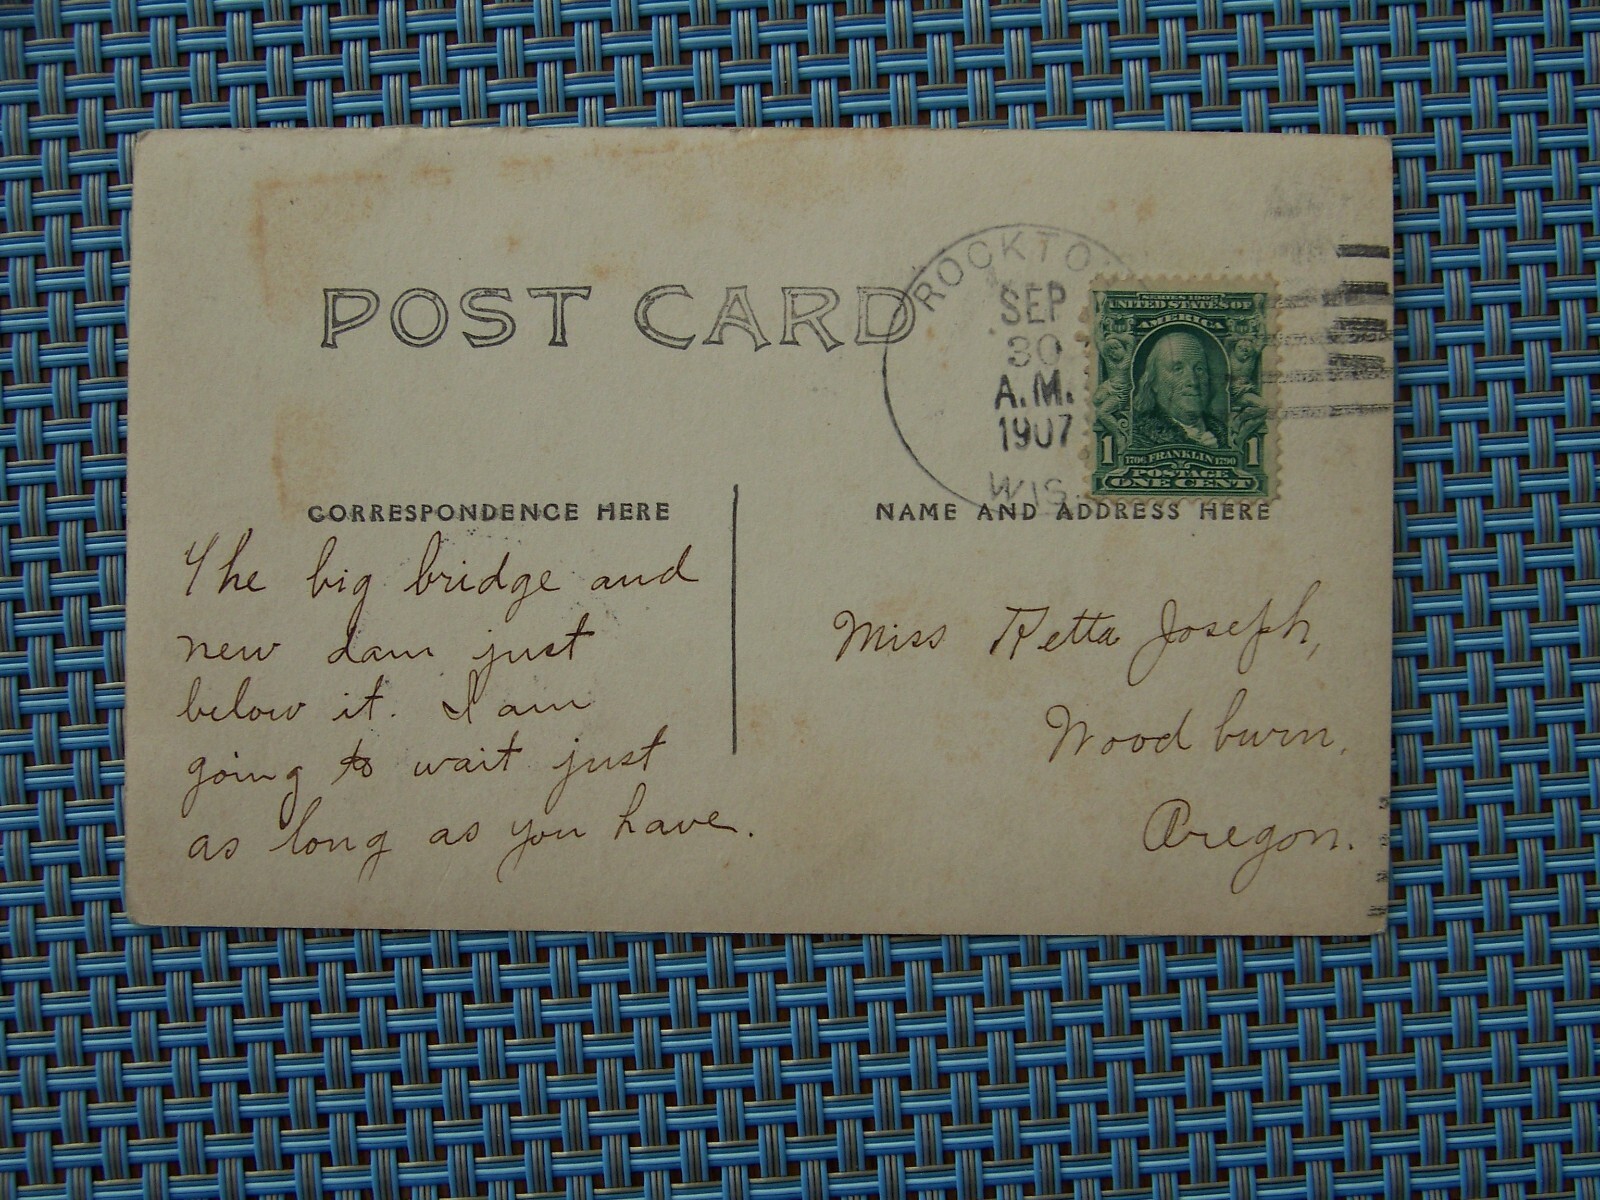 POST CARD
ROCKTO
SEP
30
A.M.
1907
WIS.
SERIES 1902
UNITED STATES OF
AMERICA
1 1
1706 FRANKLIN 1790
POSTAGE
ONE CENT
CORRESPONDENCE HERE
The big bridge and
new dam just
below it. I am
going to wait just
as long as you have.
NAME AND ADDRESS HERE
Miss Retta Joseph,
Woodburn,
Oregon.